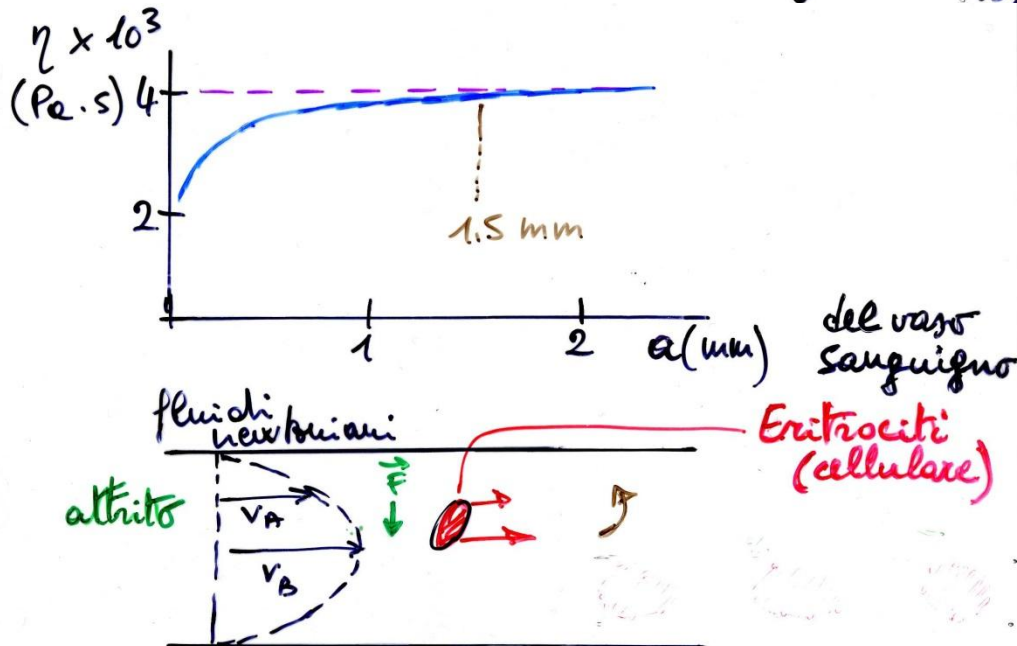 η × 10³
(Pa.s) 4
2
1.5 mm
1
2
a(mm)
del vaso
sanguigno
fluidi
newtoniani
Eritrociti
(cellulare)
attrito
F
v_A
v_B